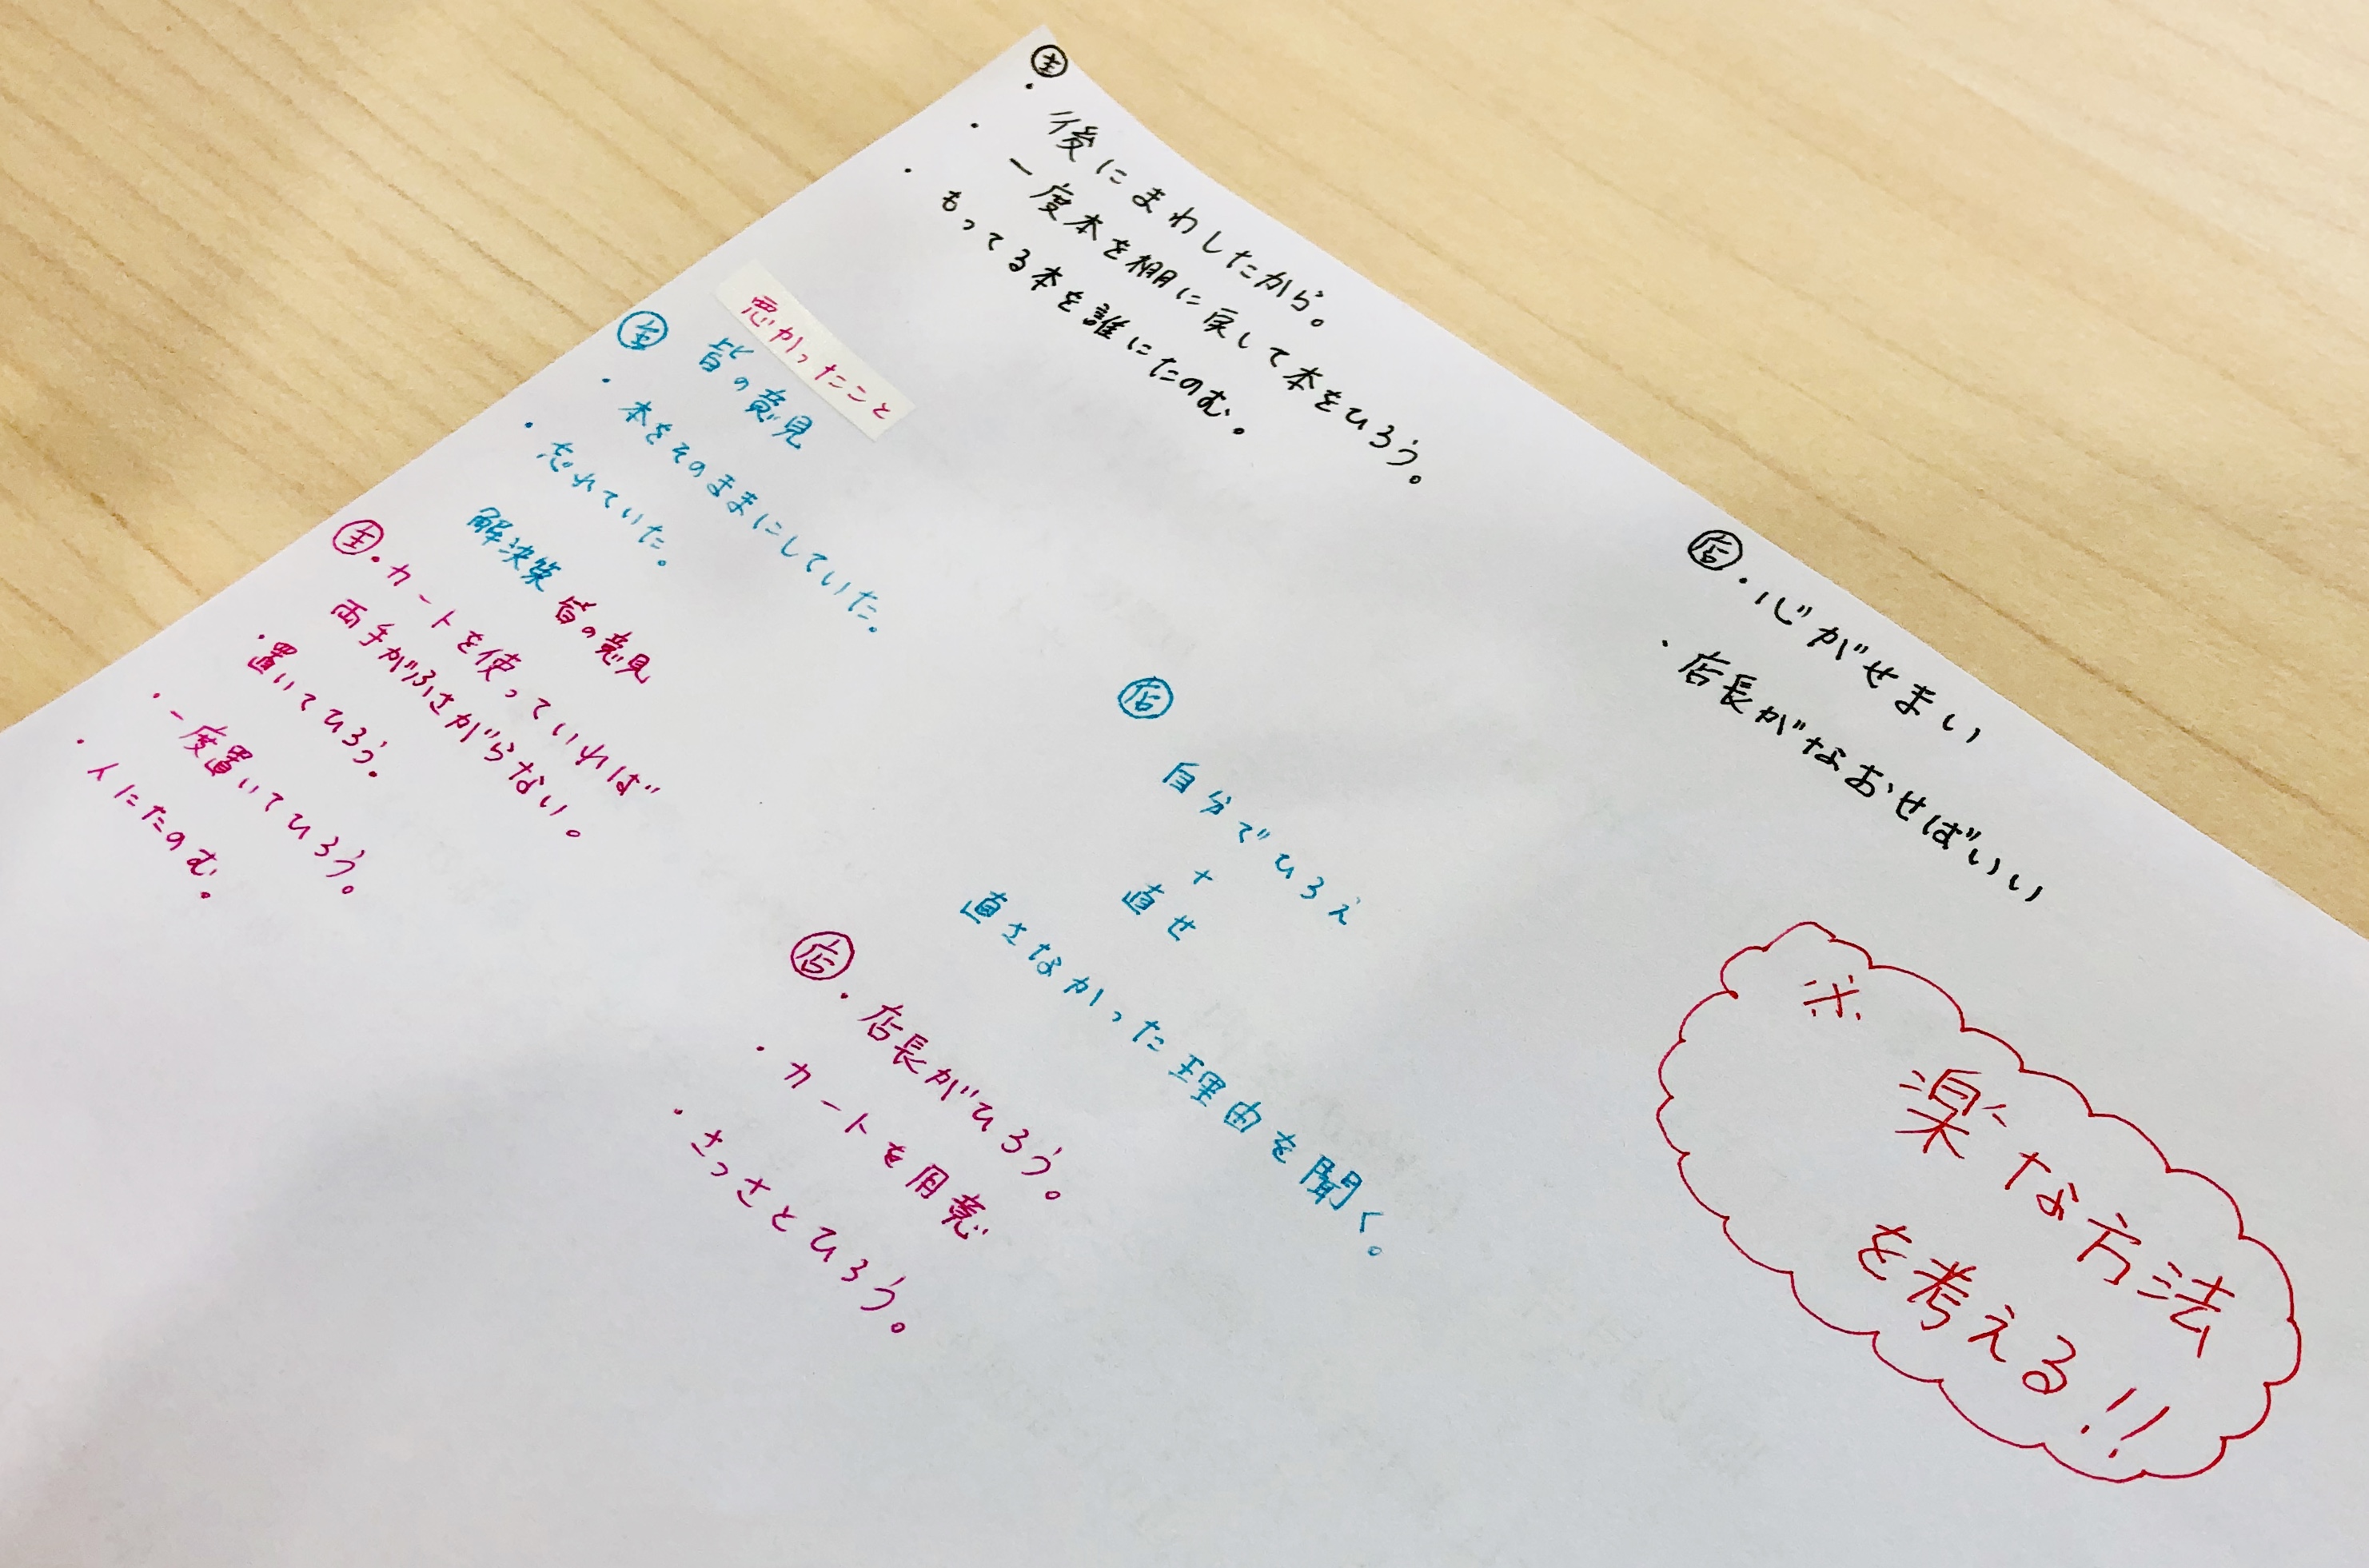 主
・後にまわしたから。
・一度本を棚に戻して本をひろう。
・もってる本を誰にたのむ。
店
・心がせまい
・店長がなおせばいい
悪かったこと
皆の意見
主
・本をそのままにしていた。
・忘れていた。
店
自分でひろえ
+
直せ
直さなかった理由を聞く。
解決策 皆の意見
主・カートを使っていれば
両手がふさがらない。
・置いてひろう。
・一度置いてひろう。
・人にたのむ。
店・店長がひろう。
・カートを用意
・さっさとひろう。
※
楽な方法
を考える!!